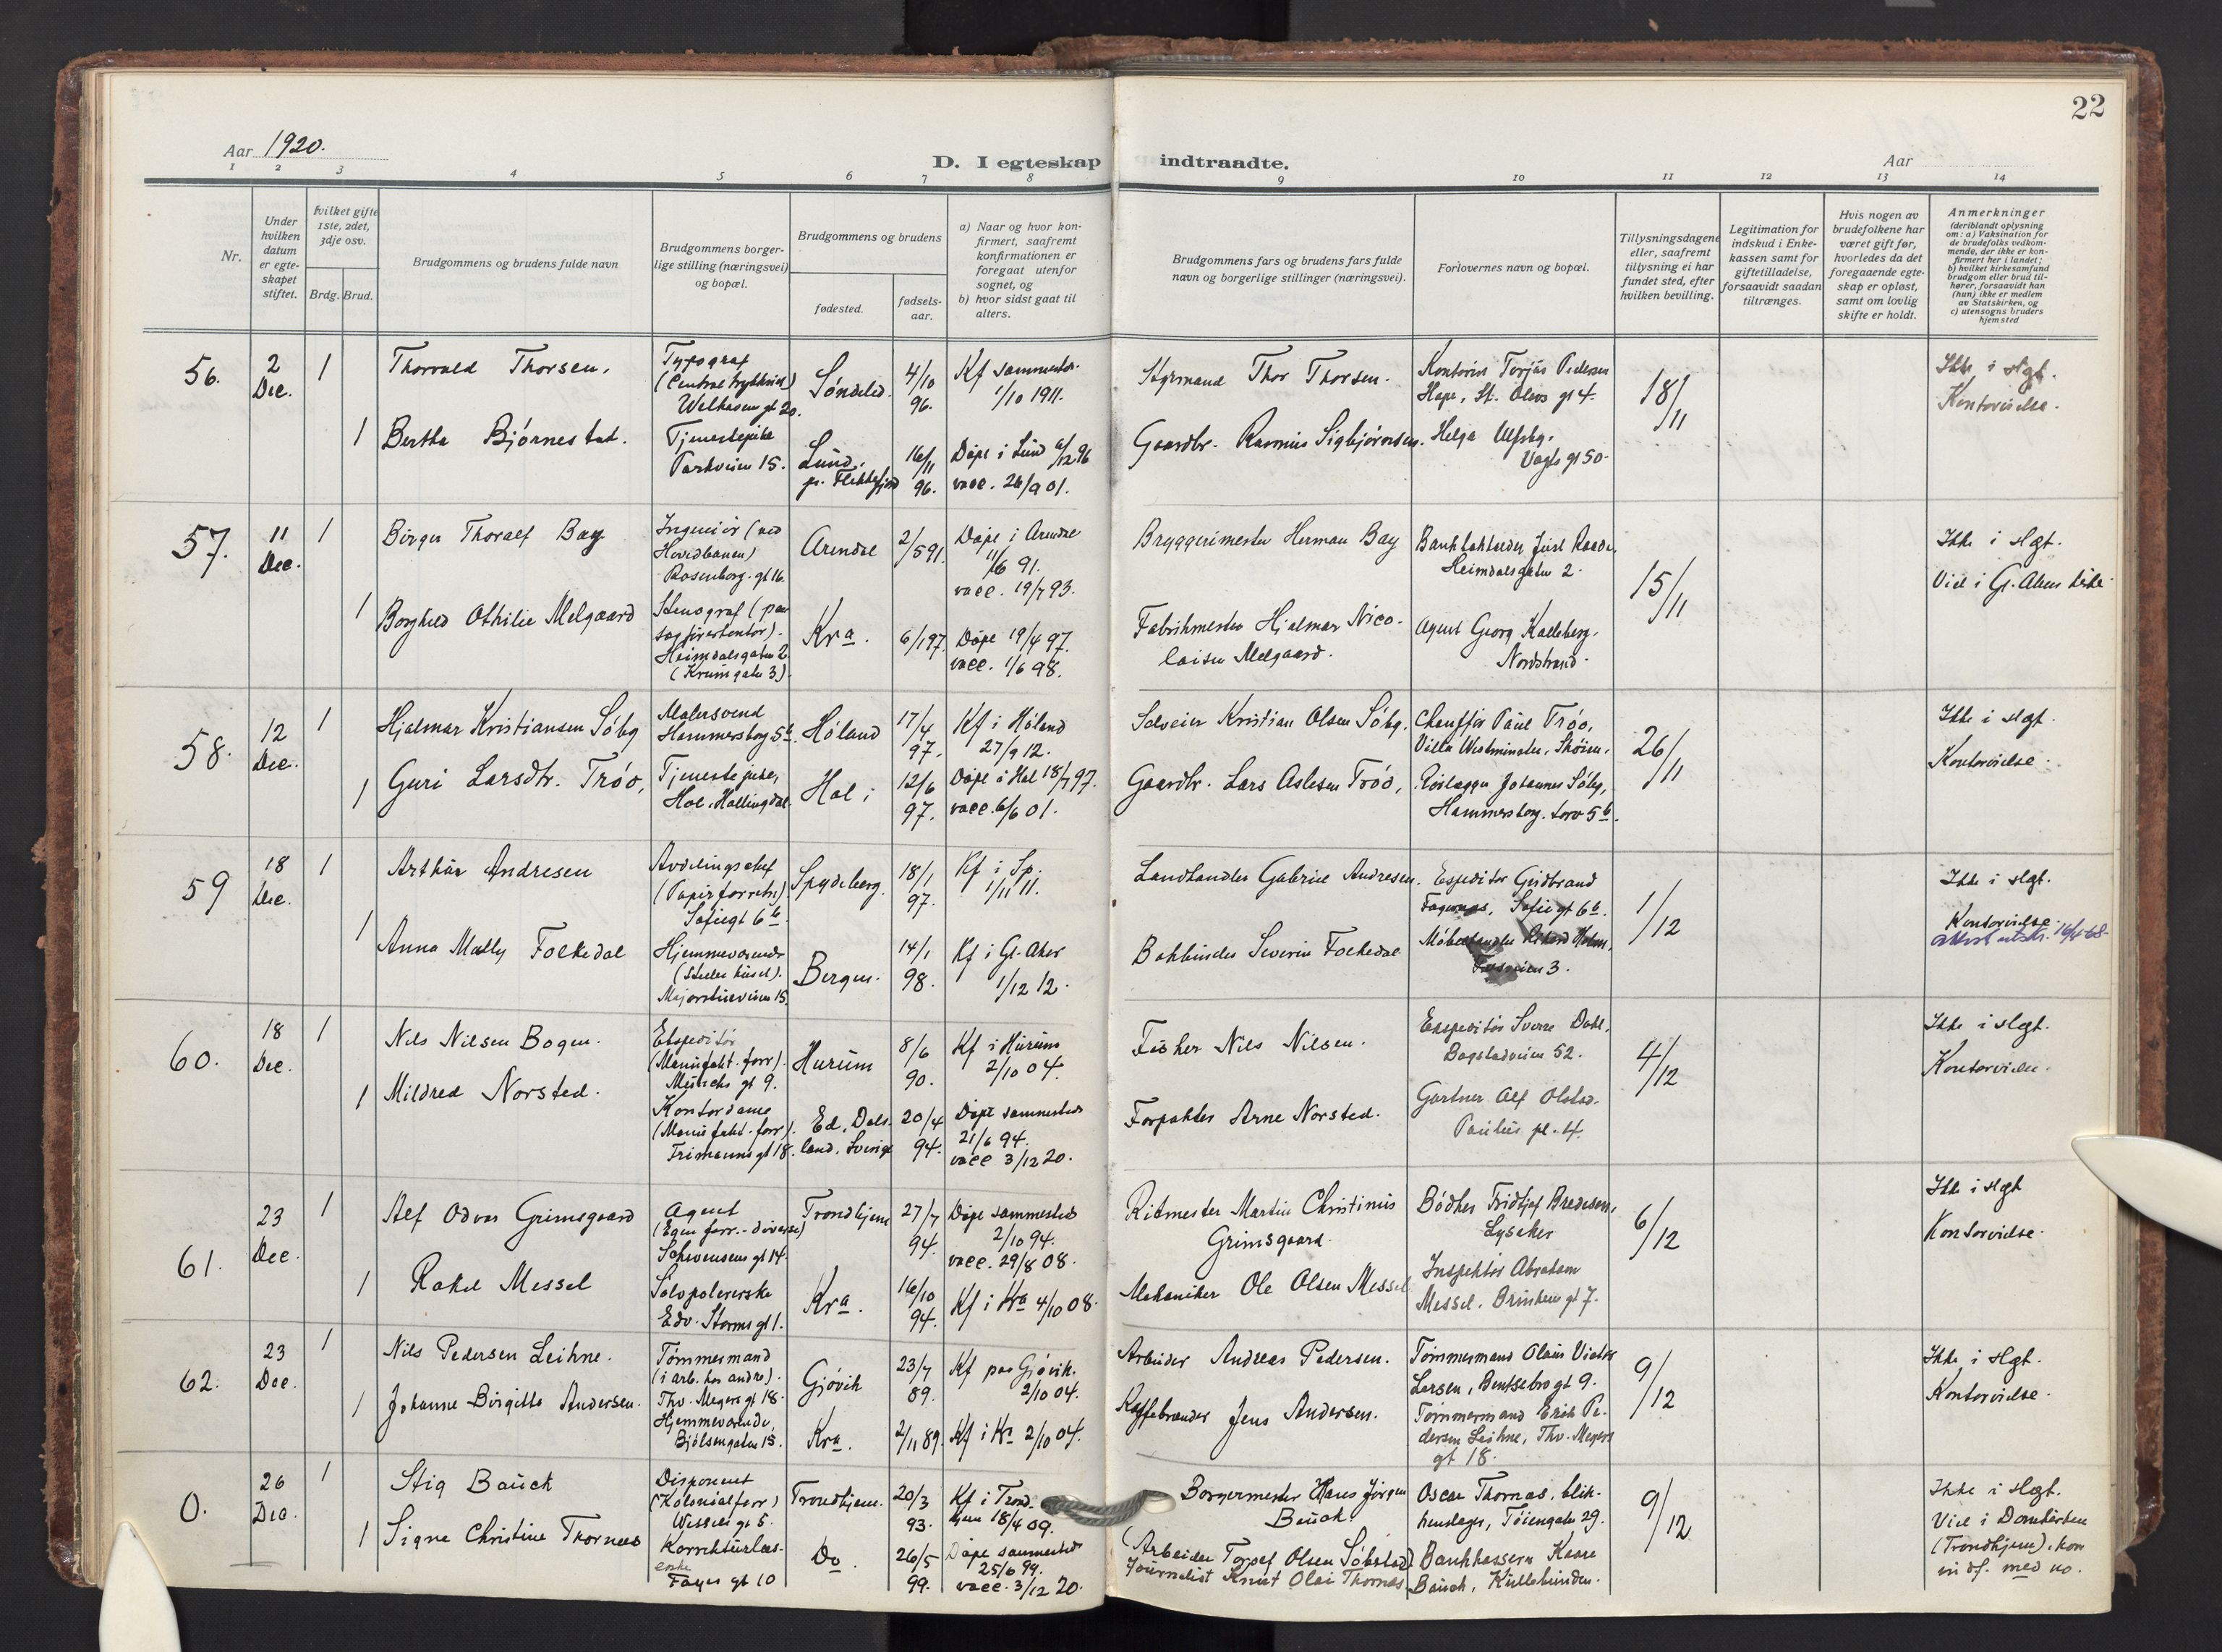 22
Aar 1920.
D. I egteskap indtraadte.
Aar
1 2 3 4 5 6 7 8 9 10 11 12 13 14
Nr.
Under hvilken datum er egteskapet stiftet.
hvilket gifte 1ste, 2det, 3dje osv.
Brdg. Brud.
Brudgommens og brudens fulde navn
Brudgommens borgerlige stilling (næringsvei) og bopæl.
Brudgommens og brudens
fødested.
fødselsaar.
a) Naar og hvor konfirmert, saafremt konfirmationen er foregaat utenfor sognet, og
b) hvor sidst gaat til alters.
Brudgommens fars og brudens fars fulde navn og borgerlige stillinger (næringsvei).
Forlovernes navn og bopæl.
Tillysningsdagene eller, saafremt tillysning ei har fundet sted, efter hvilken bevilling.
Legitimation for indskud i Enkekassen samt for giftetilladelse, forsaavidt saadan tiltrænges.
Hvis nogen av brudefolkene har været gift før, hvorledes da det foregaaende egteskap er opløst, samt om lovlig skifte er holdt.
Anmerkninger (deriblandt oplysning om: a) Vaksination for de brudefolks vedkommende, der ikke er konfirmert her i landet; b) hvilket kirkesamfund brudgom eller brud tilhører, forsaavidt han (hun) ikke er medlem av Statskirken, og c) utensogns bruders hjemsted
56.
2 Dec.
1
Thorvald Thorsen.
Typograf
Welhavens gt 20.
Søndeled.
4/10 96.
Kf sammesteds
1/10 1911.
Styrmand Thor Thorsen.
Kontorist Torjus Pedersen
Hope, St. Olavs gt 4.
18/11
Ikke i slegt.
Kontorvielse.
1
Bertha Bjørnestad.
Tjenestepike
Parkveien 15.
Lund,
pr. Flekkefjord
16/11 96.
Døpt i Lund 6/12 96
vacc. 26/9 01.
Gaardbr. Rasmus Sigbjørnsen.
Helga Ulfsby.
Vogts gt 50.
57.
11 Dec.
1
Birger Thoralf Bay
Ingeniør (ved
Hovedbanen)
Rosenborg. gt 16.
Arendal
2/5 91.
Døpt i Arendal
11/6 91.
vacc. 19/7 93.
Bryggerimester Herman Bay
Heimdalsgaten 2.
15/11
Ikke i slegt.
Viet i Gl. Akers kirke.
1
Borghild Othilie Melgaard
Stenograf (paa
sagførerkontor).
Heimdalsgaten 2
Kra.
6/1 97.
Døpt 19/4 97.
vacc. 1/6 98.
Fabrikmester Hjalmar Nico-
laisen Melgaard.
Agent Georg Kalleberg.
Nordstrand.
58.
12 Dec.
1
Hjalmar Kristiansen Søby
Malersvend
Hammersborg 5b.
Høland
17/4 97.
Kf i Høland
27/9 12.
Selveier Kristian Olsen Søby.
Chauffør Paul Trøo,
Villa Westminster, Skøien.
26/11
Ikke i slegt.
Kontorvielse.
1
Guri Larsdtr. Trøo,
Tjenestepike,
Hol, Hallingdal.
Hol i
12/6 97.
Døpt i Hol 18/7 97.
vacc. 6/6 01.
Gaardbr. Lars Aslesen Trøo,
Rørlægger Johannes Søby,
Hammersborg. torv 5b.
59
18 Dec.
1
Arthur Andresen
Avdelingschef
(Papirforretn.)
Sofiegt 6b.
Spydeberg.
18/1 97.
Kf i Sp.
1/11 11.
Landhandler Gabriel Andresen.
Expeditør Gudbrand
Fagernæs, Sofie gt 6b.
1/12
Ikke i slegt.
Kontorvielse.
1
Anna Mally Folkedal
Hjemmeværende
(steller huset).
Majorstuveien 15.
Bergen.
14/1 98.
Kf i Gl. Aker
1/12 12.
Bokbinder Severin Folkedal
Møbelhandler Rikard Holm,
60.
18 Dec.
1
Nils Nilsen Bogen.
Ekspeditør
(Manufakt. forr).
Munchs gt 9.
Hurum
8/6 90.
Kf i Hurum
2/10 04.
Fisker Nils Nilsen.
Expeditør Sverre Dahl,
Bogstadveien 52.
4/12
Ikke i slegt.
Kontorvielse.
1
Mildred Norsted.
Kontordame
(Manufakt. forr).
Frimanns gt 18.
Ed, Dals-
land, Sverige
20/4 94.
Døpt sammesteds
21/6 94.
vacc 3/12 20.
Forpakter Arne Norsted.
Gartner Alf Olstad.
Paulus pl. 4.
61.
23 Dec.
1
Alf Odvar Grimsgaard
Agent
(Egen forr. - diverse)
Schwensens gt 14.
Trondhjem
27/7 94.
Døpt sammesteds
2/10 94.
vacc. 29/8 08.
Ritmester Martin Christinus
Grimsgaard.
Bødker Fridtjof Bredesen,
Lysaker
6/12
Ikke i slegt
Kontorvielse.
1
Rakel Messel
Sølvpolererske
Edv. Storms gt 1.
Kra.
16/10 94.
Kf i Kra 4/10 08.
Mekaniker Ole Olsen Messel
Inspektør Abraham
Messel. Brinkens gt 7.
62.
23 Dec.
1
Nils Pedersen Leihne.
Tømmermand
(i arb. hos andre).
Thv. Meyers gt 18.
Gjøvik
23/7 89.
Kf paa Gjøvik.
2/10 04.
Arbeider Andreas Pedersen.
Tømmermand Olaus Victor
Larsen, Bentsebro gt 9.
9/12
Ikke i slegt.
Kontorvielse.
1
Johanne Birgitte Andersen.
Hjemmeværende,
Bjølsengaten 13.
Kra.
2/11 89.
Kf i Kra 2/10 04.
Kaffebrænder Jens Andersen.
Tømmermand Erik Pe-
dersen Leihne, Thv. Meyers
gt 18.
0.
26 Dec.
1
Stig Bauck
Disponent
(Kolonialforr)
Wessels gt 5.
Trondhjem.
20/3 93.
Kf i Trond-
hjem 18/4 09.
Borgermester Hans Jørgen
Bauck
Oscar Thornæs, blik-
kenslager, Tøiengaten 29.
9/12
Ikke i slegt.
Viet i Domkirken
(Trondhjem).
1
Signe Christine Thornæs
Korrekturlæs-
erske
Fayes gt 10
Do.
26/5 99.
Døpt sammesteds
25/6 99.
vacc. 3/12 20.
Arbeider Toralf Olsen Søbstad
Journalist Knut Olai Thornæs
Bankkasserer Kaare
Bauck,